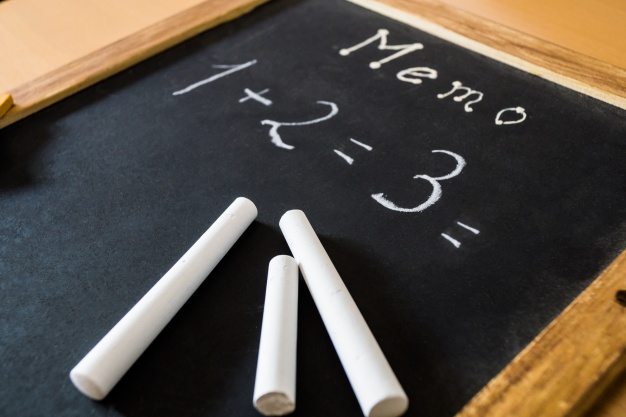 Memo
1+2=3=